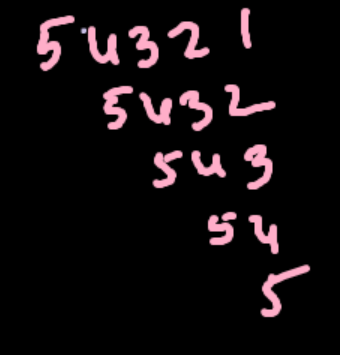 5 4 3 2 1
5 4 3 2
5 4 3
5 4
5